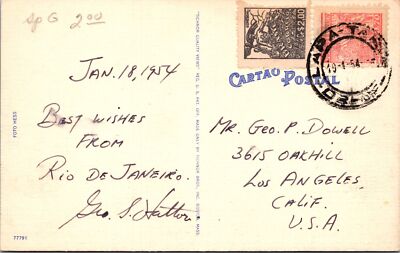 Sp G 2.00
Jan. 18, 1954
Best wishes
from
Rio de Janeiro.
Geo. S. Hatton
CARTAO POSTAL
Mr. Geo. P. Dowell
3615 Oakhill
Los Angeles,
Calif.
U.S.A.
FOTO HESS
77791
2,00
LAPA